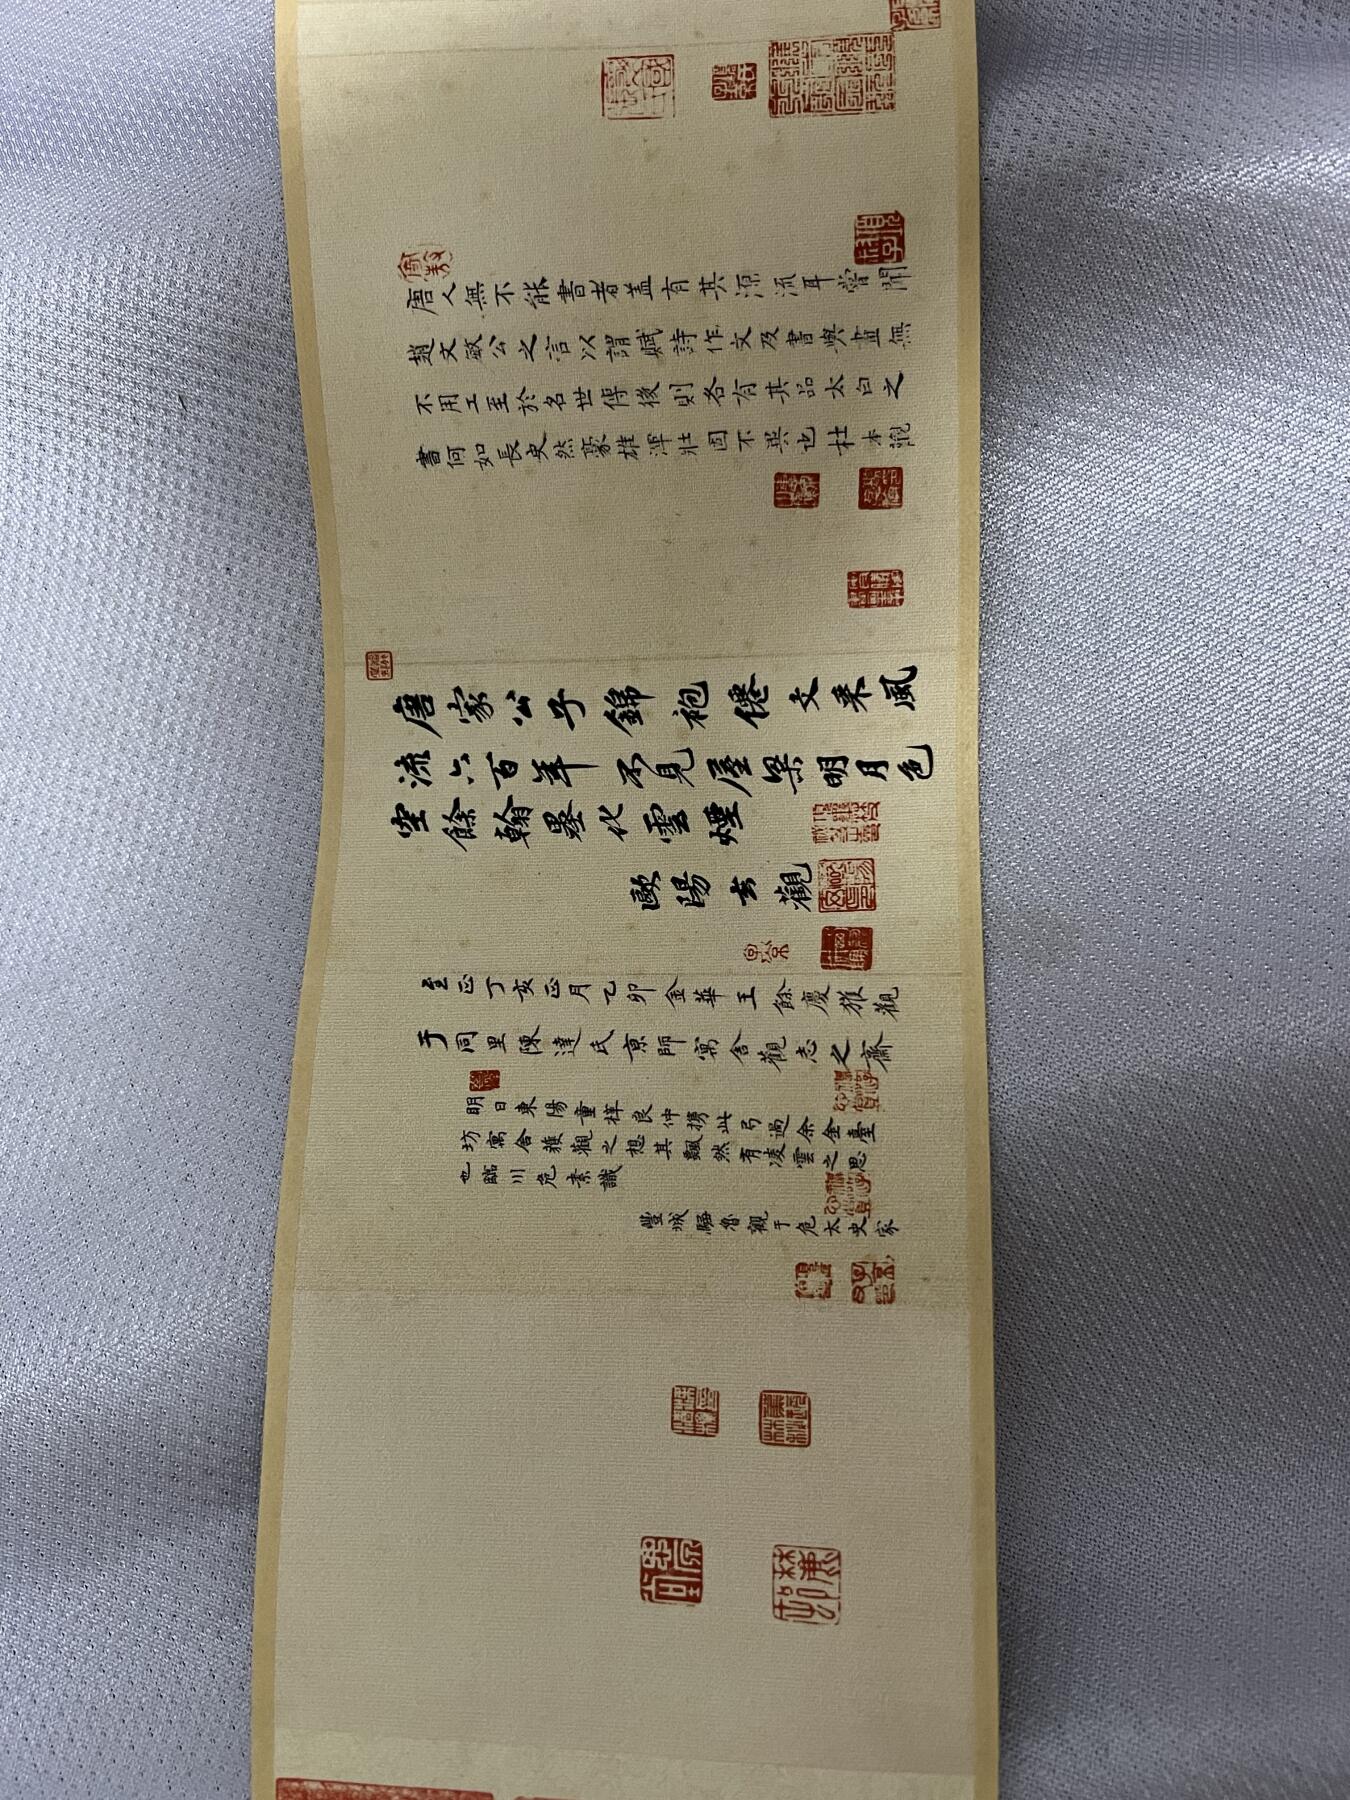 唐人無不能書者蓋有其源流耳嘗聞
趙文敏公之言以謂賦詩作文及書與畫無
不用工至於名世傳後則各有其品太白之
書何如長史然豪雄渾壯固不異也杜本觀
唐家公子錦袍僊文采風
流六百年不見屋梁明月色
空餘翰墨化雲煙
歐陽玄觀
至正丁亥正月乙卯金華王餘慶獲觀
于同里陳達氏京師寓舍觀志之齋
明日東陽童梓良仲攜此弓過余金臺
坊寓舍獲觀之想其飄然有凌雲之思
也臨川危素識
豐城騶魯觀于危太史家